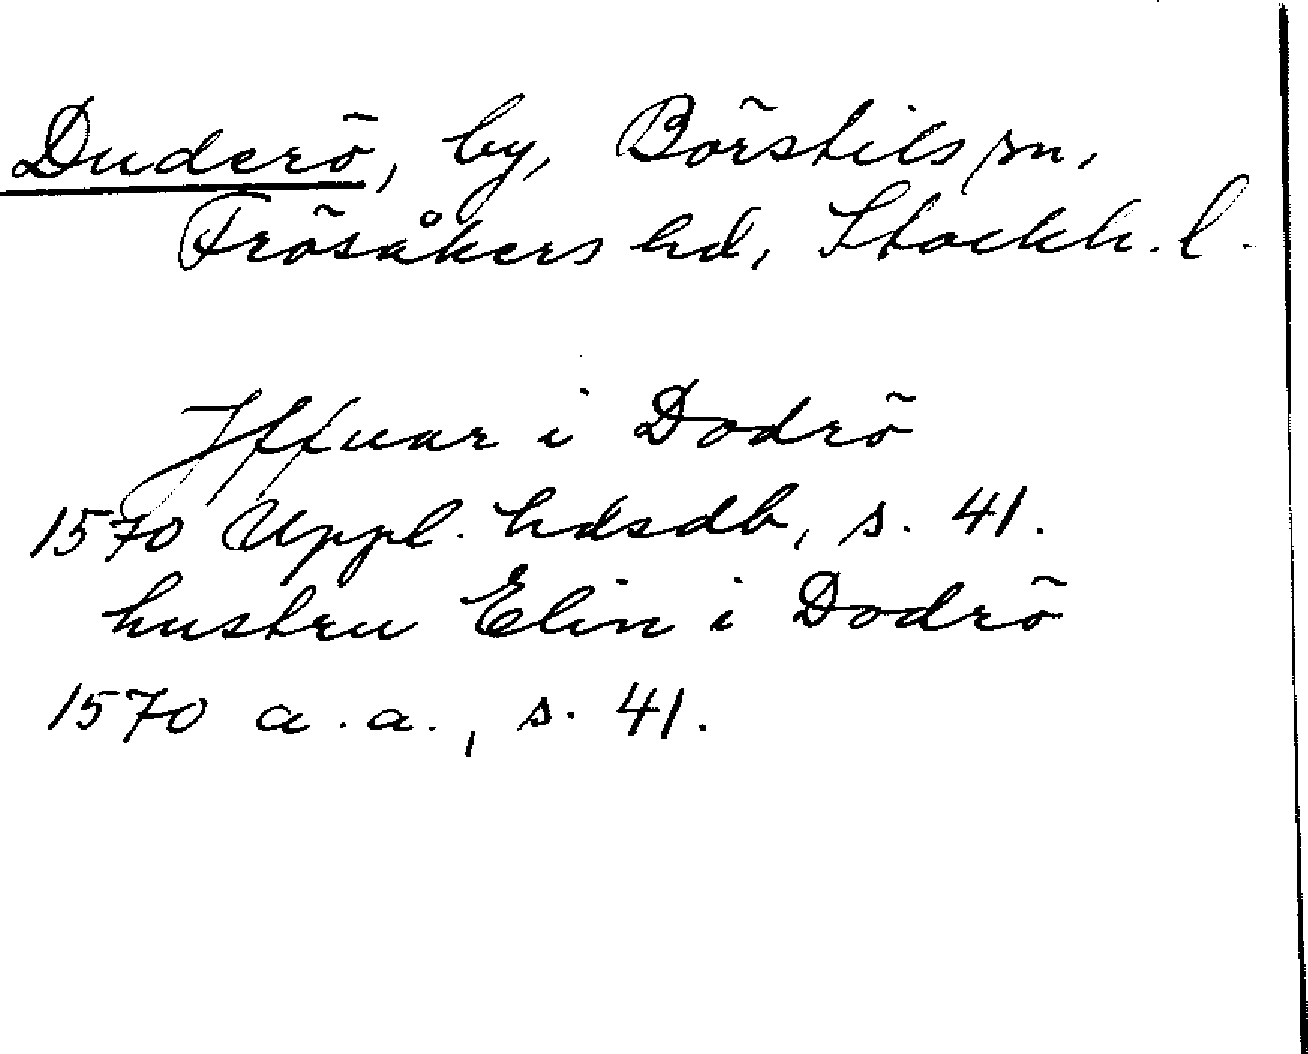 Duderö, by, Börstils sn,
Frösåkers hd, Stockh. l.
Jffuar i Dodrö
1570 Uppl. hdsdb, s. 41.
hustru Elin i Dodrö
1570 a. a., s. 41.